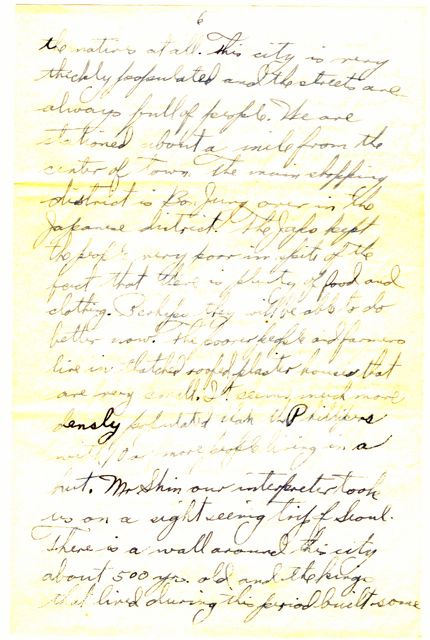 6
the natives at all. This city is very
thickly populated and the streets are
always full of people. We are
stationed about a mile from the
center of town. The main shopping
district is Bon Jung over in the
Japanese district. The Japs kept
the people very poor in spite of the
fact that there is plenty of food and
clothing. Perhaps they will be able to do
better now. The poorer people and farmers
live in thatched roofed plaster houses that
are very small. It seems much more
densly populated than the Phillipines
with 10 or more people living in a
hut. Mr. Shin our interpreter took
us on a sight seeing trip of Seoul.
There is a wall around this city
about 500 yrs. old and the kings
that lived during this period built some